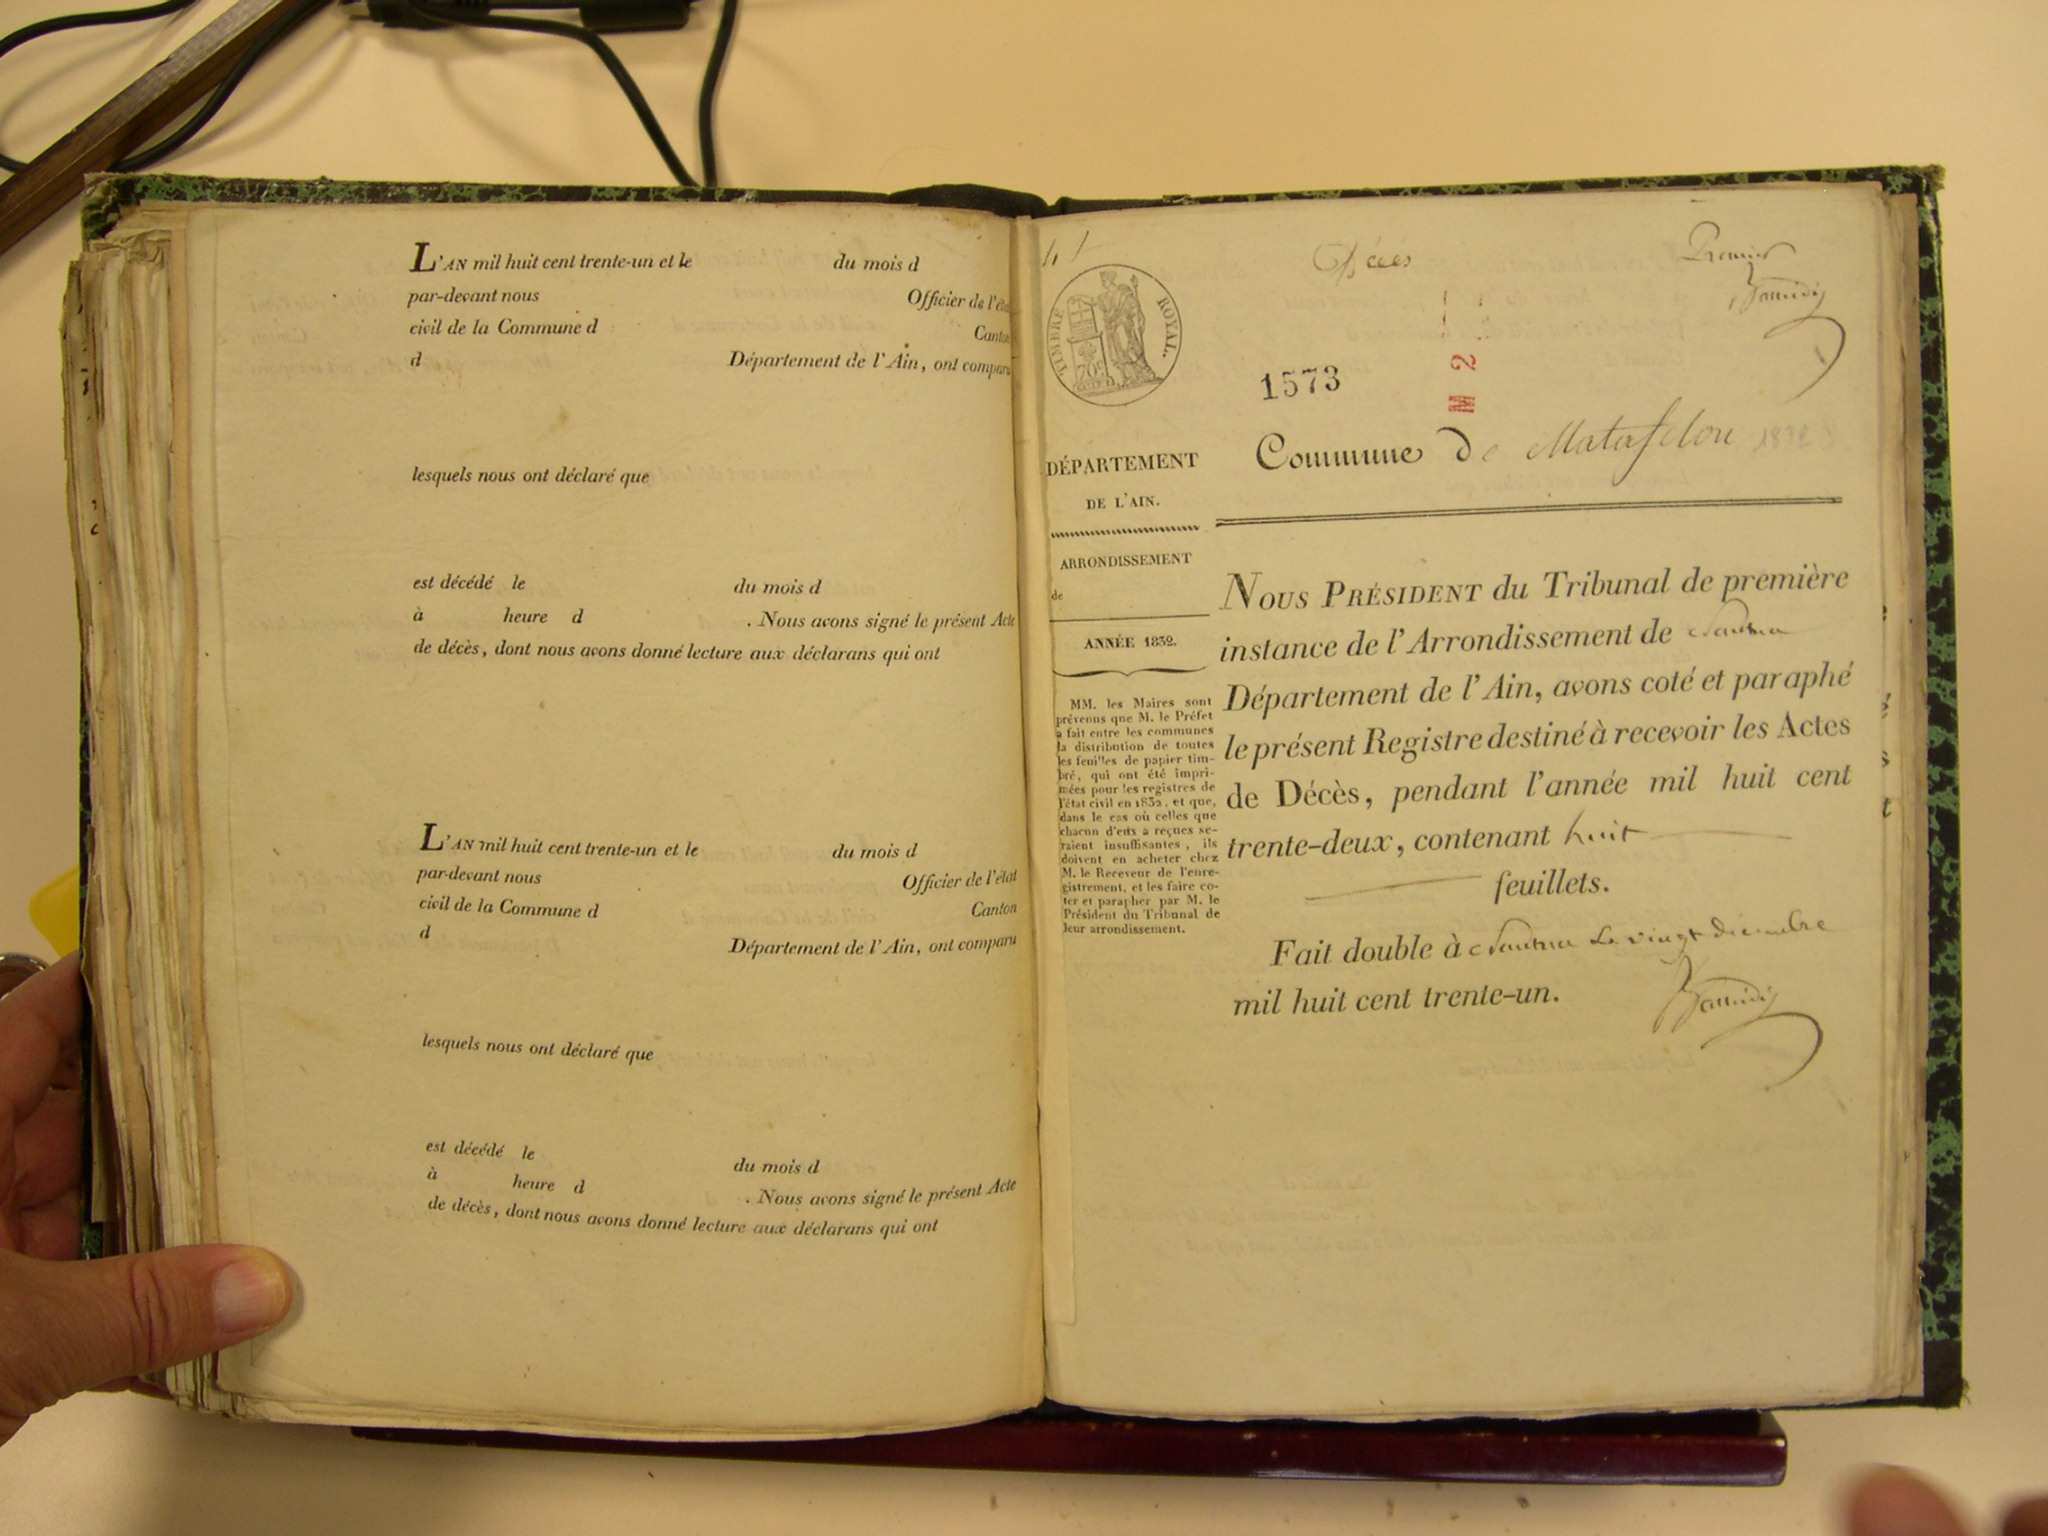 L'AN mil huit cent trente-un et le du mois d
par-devant nous Officier de l'état
civil de la Commune d Canton
d Département de l'Ain, ont comparu
lesquels nous ont déclaré que
est décédé le du mois d
à heure d . Nous avons signé le présent Acte
de décès, dont nous avons donné lecture aux déclarans qui ont
L'AN mil huit cent trente-un et le du mois d
par-devant nous Officier de l'état
civil de la Commune d Canton
d Département de l'Ain, ont comparu
lesquels nous ont déclaré que
est décédé le du mois d
à heure d . Nous avons signé le présent Acte
de décès, dont nous avons donné lecture aux déclarans qui ont
Décès
Premier
TIMBRE ROYAL.
70c
M 2
1573
Commune de Matafelon 1832
DÉPARTEMENT
DE L'AIN.
ARRONDISSEMENT
de
ANNÉE 1832.
MM. les Maires sont
prévenus que M. le Préfet
a fait entre les communes
la distribution de toutes
les feuilles de papier tim-
bré, qui ont été impri-
mées pour les registres de
l'état civil en 1832, et que,
dans le cas où celles que
chacun d'eux a reçues se-
raient insuffisantes, ils
doivent en acheter chez
M. le Receveur de l'enre-
gistrement, et les faire co-
ter et parapher par M. le
Président du Tribunal de
leur arrondissement.
NOUS PRÉSIDENT du Tribunal de première
instance de l'Arrondissement de Nantua
Département de l'Ain, avons coté et paraphé
le présent Registre destiné à recevoir les Actes
de Décès, pendant l'année mil huit cent
trente-deux, contenant huit
feuillets.
Fait double à Nantua le vingt décembre
mil huit cent trente-un.